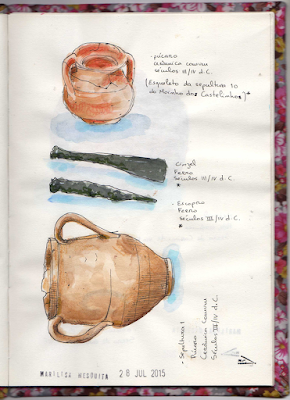 - púcaro
cerâmica comum
séculos III/IV d.C.
(Esqueleto da sepultura 10
do Moinho dos Castelinhos)*
Cinzel
Ferro
Séculos III/IV d.C.
*
- Escopro
Ferro
séculos III/IV d.C.
*
- Sepultura 1
Púcaro
Cerâmica Comum
Séculos III/IV d.C.
MARILISA MESQUITA 28 JUL 2015